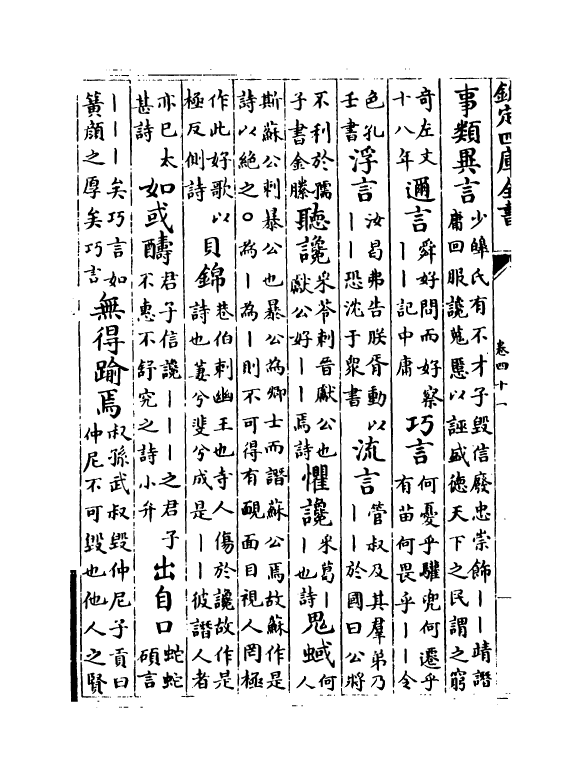 欽定四庫全書 卷四十一
事類異言 少皥氏有不才子毀信廢忠崇飾丨丨靖譖庸回服讒蒐慝以誣盛德天下之民謂之窮
奇左文十八年 邇言 舜好問而好察丨丨記中庸 巧言 何憂乎驩兜何遷乎有苗何畏乎丨丨令
色孔壬書 浮言 汝曷弗告朕胥動以丨丨恐沈于衆書 流言 管叔及其羣弟乃丨丨於國曰公將
不利於孺子書金縢 聽讒 采苓刺晉獻公也獻公好丨丨焉詩 懼讒 采葛丨丨也詩 鬼蜮 何人
斯蘇公刺暴公也暴公為卿士而譖蘇公焉故蘇作是詩以絶之○為丨為丨則不可得有靦面目視人罔極
作此好歌以極反側詩 貝錦 巷伯刺幽王也寺人傷於讒故作是詩也萋兮斐兮成是丨丨彼譖人者
亦已太甚詩 如或醻 君子信讒丨丨丨之君子不惠不舒究之詩小升 出自口 蛇蛇碩言
丨丨丨矣巧言如簧顔之厚矣巧言 無得踰焉 叔孫武叔毀仲尼子貢曰仲尼不可毀也他人之賢